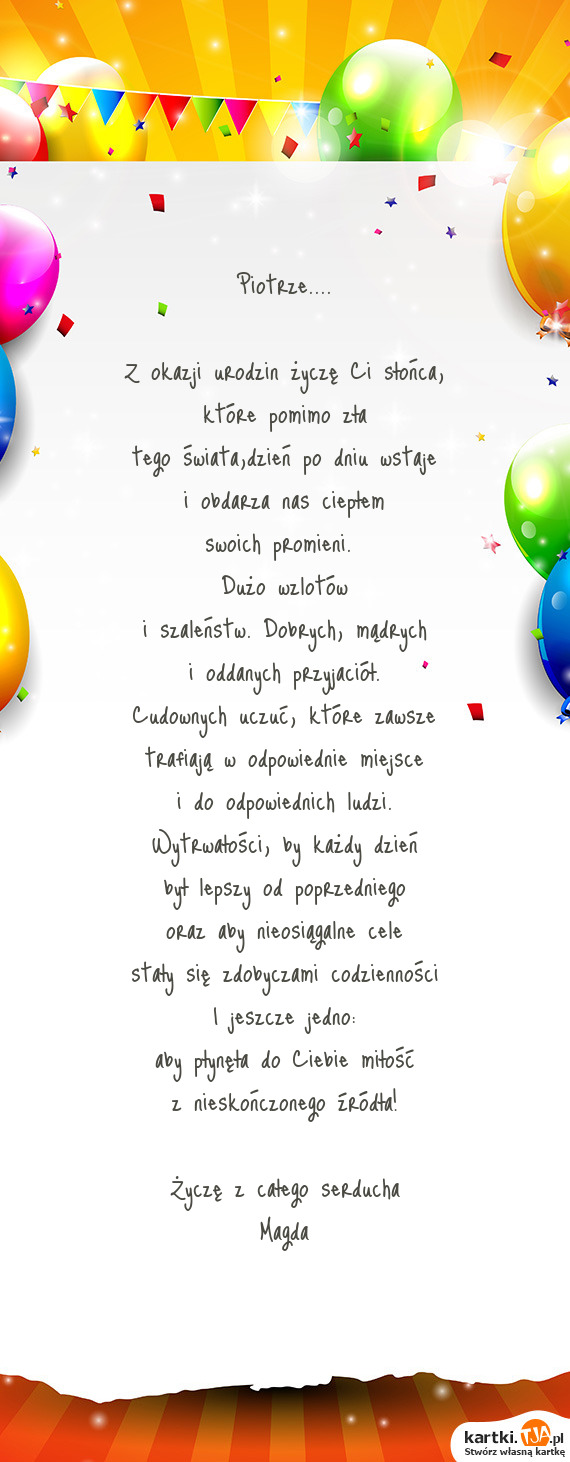 Piotrze....
Z okazji urodzin życzę Ci słońca,
które pomimo zła
tego świata,dzień po dniu wstaje
i obdarza nas ciepłem
swoich promieni.
Dużo wzlotów
i szaleństw. Dobrych, mądrych
i oddanych przyjaciół.
Cudownych uczuć, które zawsze
trafiają w odpowiednie miejsce
i do odpowiednich ludzi.
Wytrwałości, by każdy dzień
był lepszy od poprzedniego
oraz aby nieosiągalne cele
stały się zdobyczami codzienności
I jeszcze jedno:
aby płynęła do Ciebie miłość
z nieskończonego źródła!
Życzę z całego serducha
Magda
kartki.TJA.pl
Stwórz własną kartkę